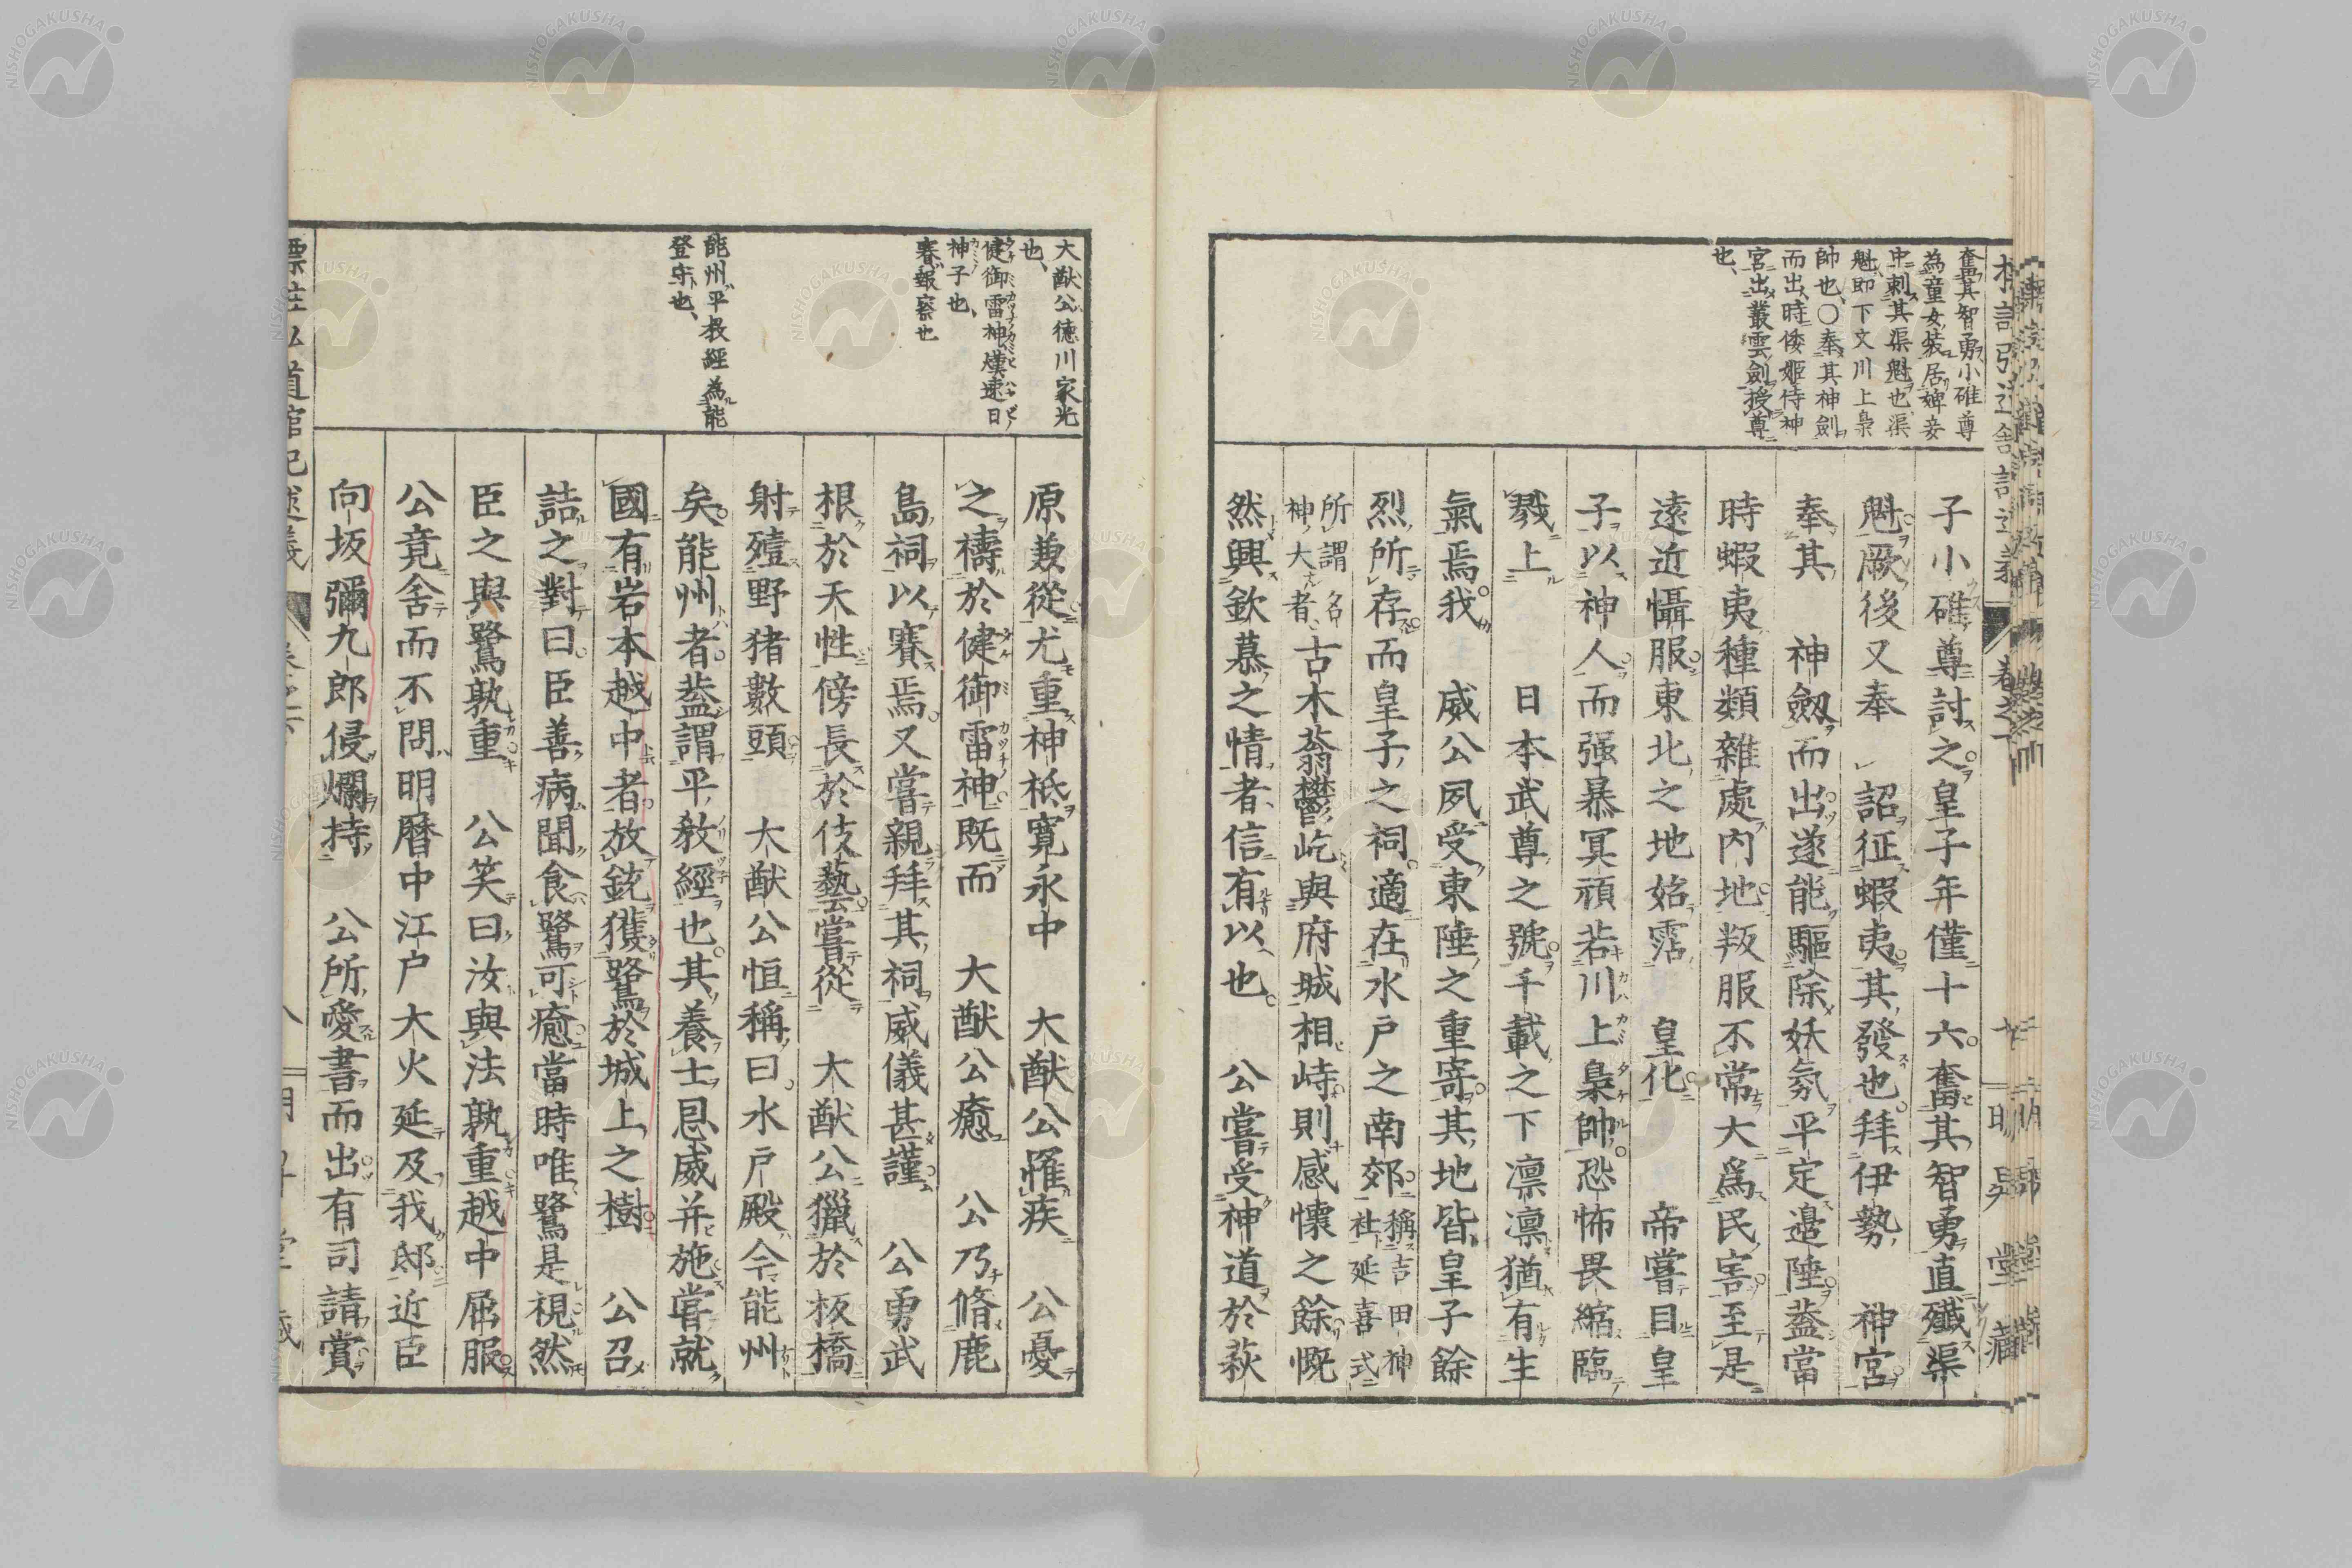 奮其智勇小碓尊
為童女裝居婢妾
中刺其渠魁也渠
魁即下文川上梟
帥也〇奉其神劍
而出時倭姬侍神
宮出叢雲劍授尊
也、
子小碓尊討之皇子年僅十六奮其智勇直殲渠
魁厥後又奉　詔征蝦夷其發也拜伊勢　神宮
奉其　神劔而出遂能驅除妖氛平定邊陲葢當
時蝦夷種類雜處內地叛服不常大爲民害至是
遠近懾服東北之地始霑　皇化　帝嘗目皇
子以神人而强暴冥頑若川上梟帥恐怖畏縮臨
戮上　日本武尊之號千載之下凛凛猶有生
氣焉我　威公夙受東陲之重寄其地皆皇子餘
烈所存而皇子之祠適在水戶之南郊稱吉田神社延喜式
所謂名神大者古木蓊鬱屹與府城相峙則感懷之餘慨
然興欽慕之情者信有以也　公嘗受神道於萩
大猷公德川家光
也、
健御雷神熯速日
神子也、
賽報祭也
能州平教經為能
登守也、
原兼從尤重神祇寛永中　大猷公罹疾　公憂
之禱於健御雷神既而　大猷公癒　公乃脩鹿
島祠以賽焉又嘗親拜其祠威儀甚謹　公勇武
根於天性傍長於伎藝嘗從　大猷公獵於板橋
射殪野猪數頭　大猷公恒稱曰水戶殿今能州
矣能州者葢謂平教經也其養士恩威并施嘗就
國有岩本越中者放銃獲鷺於城上之樹　公召
詰之對曰臣善病聞食鷺可癒當時唯鷺是視然
臣之與鷺孰重　公笑曰汝與法孰重越中屈服
公竟舍而不問明曆中江戶大火延及我邸近臣
向坂彌九郎侵爛持　公所愛書而出有司請賞